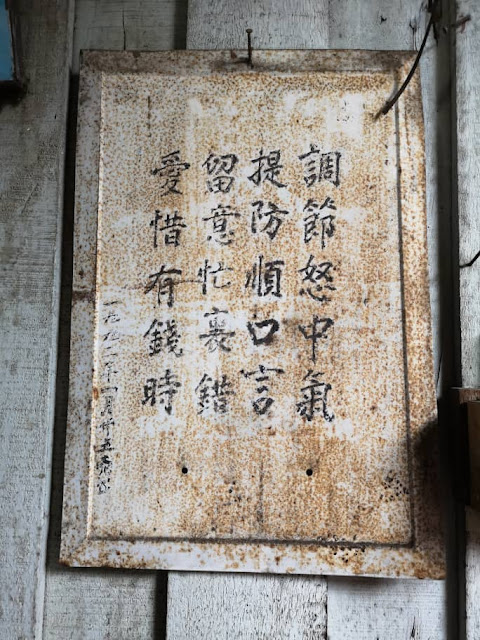 調節怒中氣
提防順口言
留意忙裏錯
愛惜有錢時
一九九年一月廿五